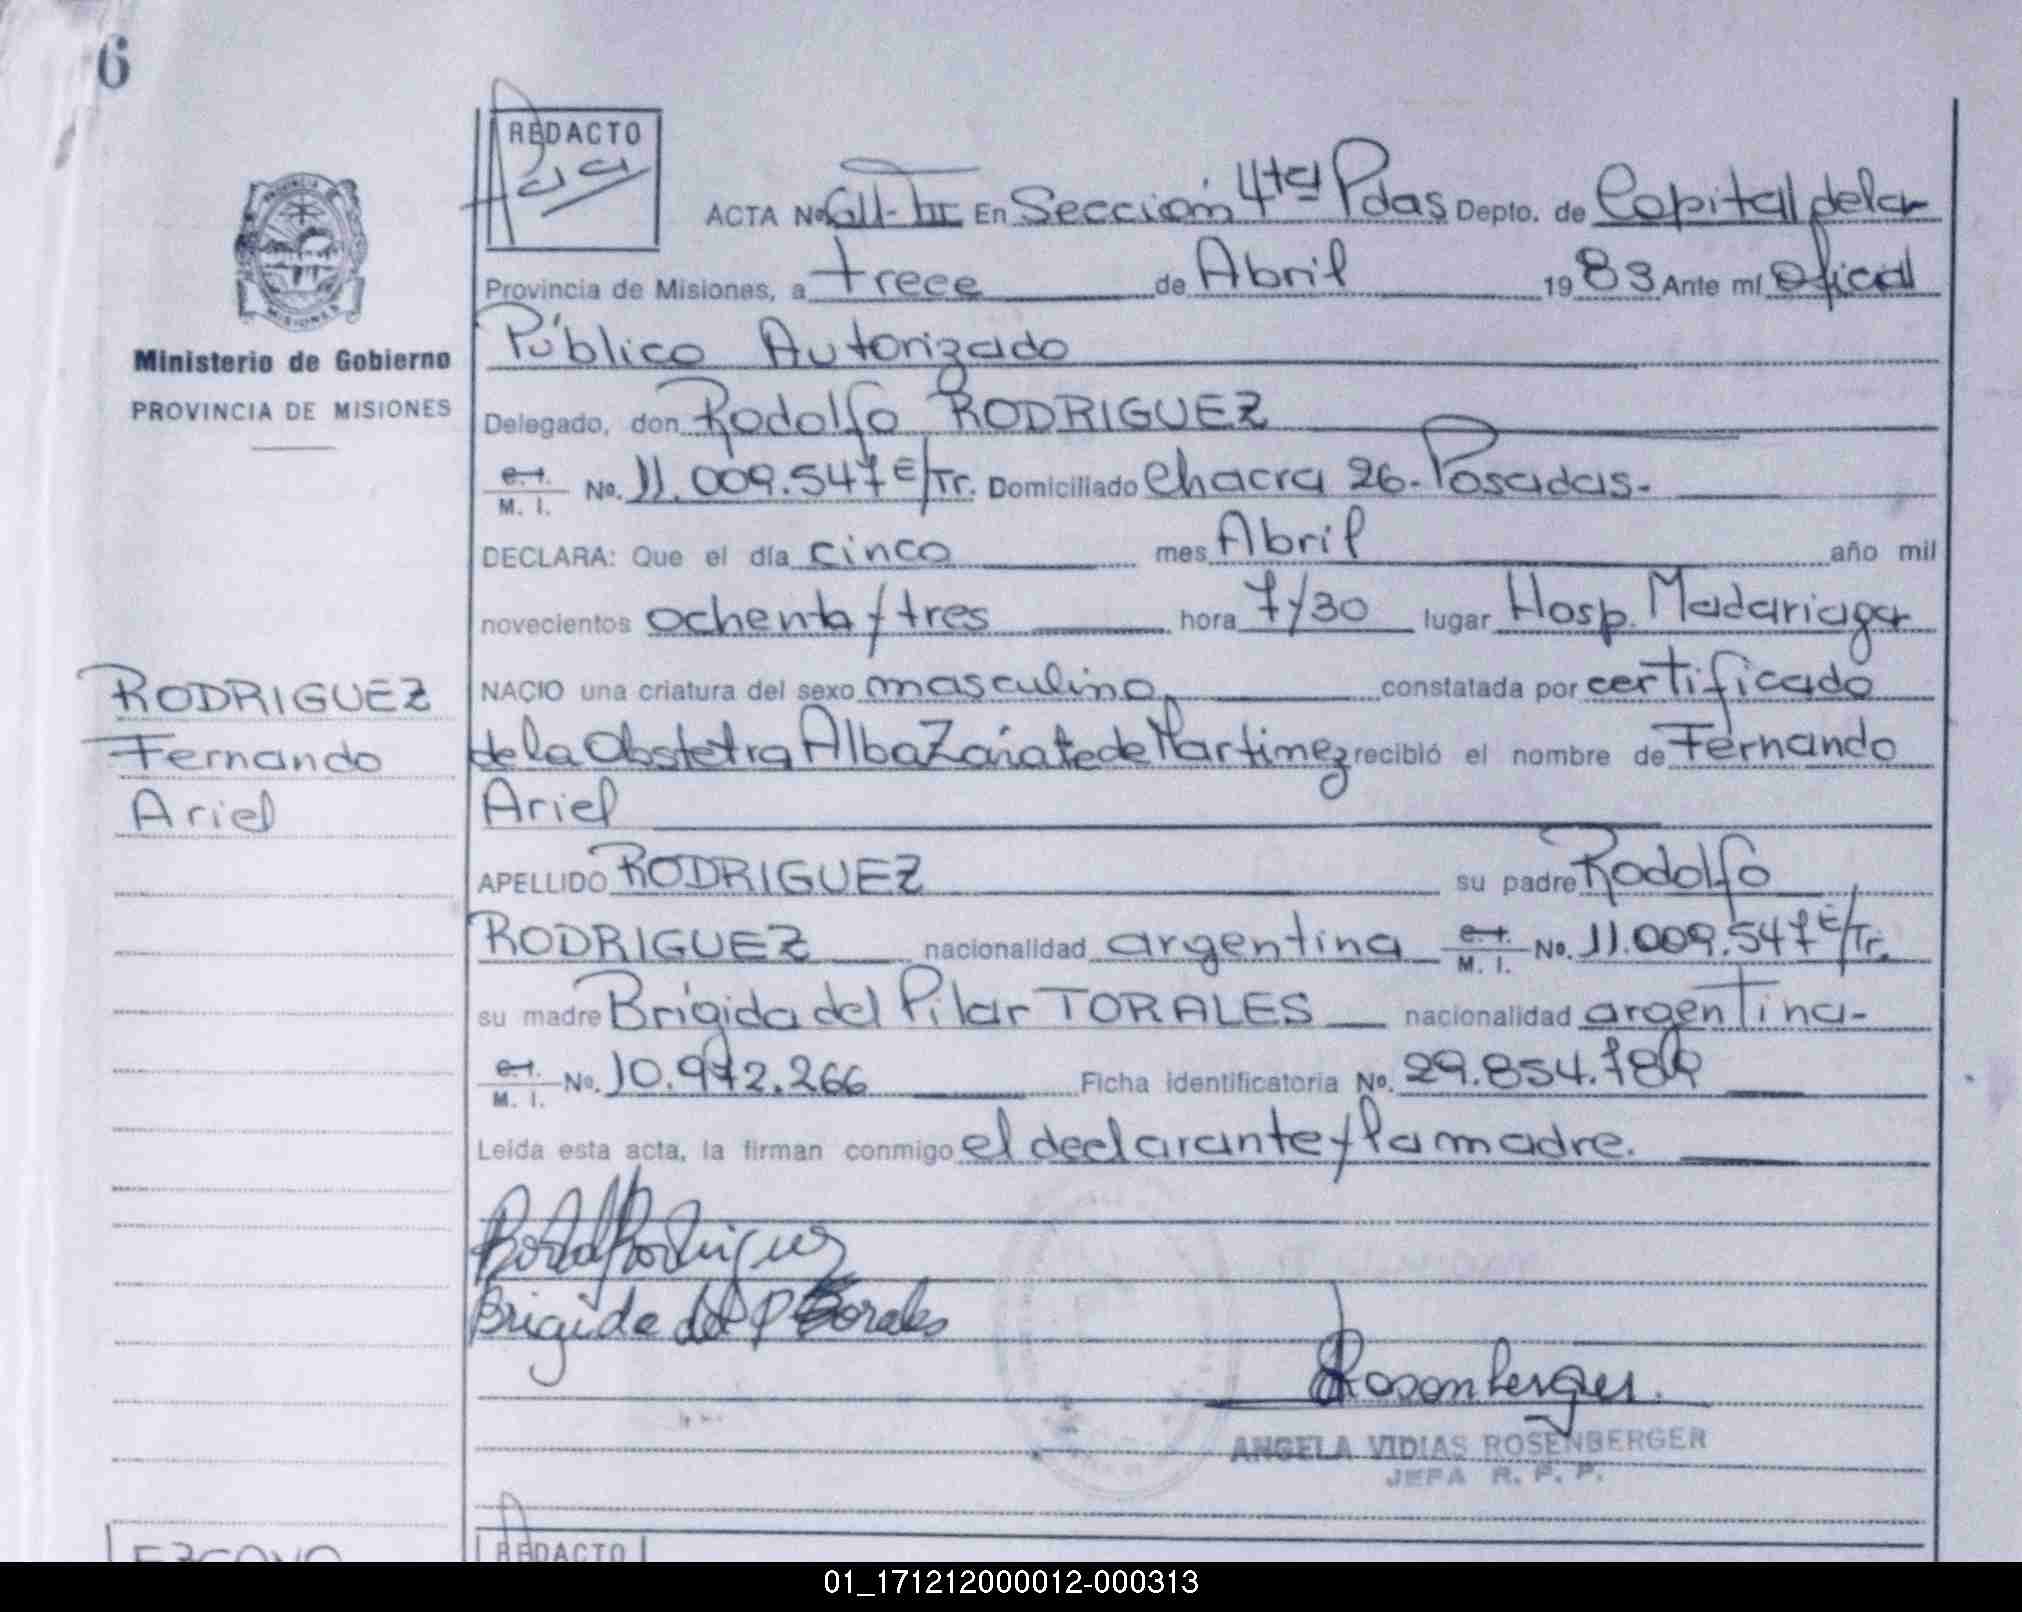 6
REDACTO
ACTA No. En Sección 4ta Pdas Depto. de Capital de la
Provincia de Misiones, a trece de Abril 1983 Ante mí Oficial
Público Autorizado
Ministerio de Gobierno
PROVINCIA DE MISIONES
Delegado, don Rodolfo RODRIGUEZ
M. I. No. 11.009.547 E/Tr. Domiciliado Chacra 26. Posadas.
DECLARA: Que el día cinco mes Abril año mil
novecientos ochenta y tres hora 7/30 lugar Hosp. Madariaga
RODRIGUEZ
Fernando
Ariel
NACIO una criatura del sexo masculino constatada por certificado
de la Obstetra Alba Zarate de Martinez recibió el nombre de Fernando
Ariel
APELLIDO RODRIGUEZ su padre Rodolfo
RODRIGUEZ nacionalidad argentina M. I. No. 11.009.547 E/Tr.
su madre Brígida del Pilar TORALES nacionalidad argentina-
M. I. No. 10.972.266 Ficha identificatoria No. 29.854.784
Leída esta acta, la firman conmigo el declarante y la madre.
Brigida del P Torales
Rosenberger.
ANGELA VIDIAS ROSENBERGER
JEFA R. P. P.
REDACTO
01_171212000012-000313